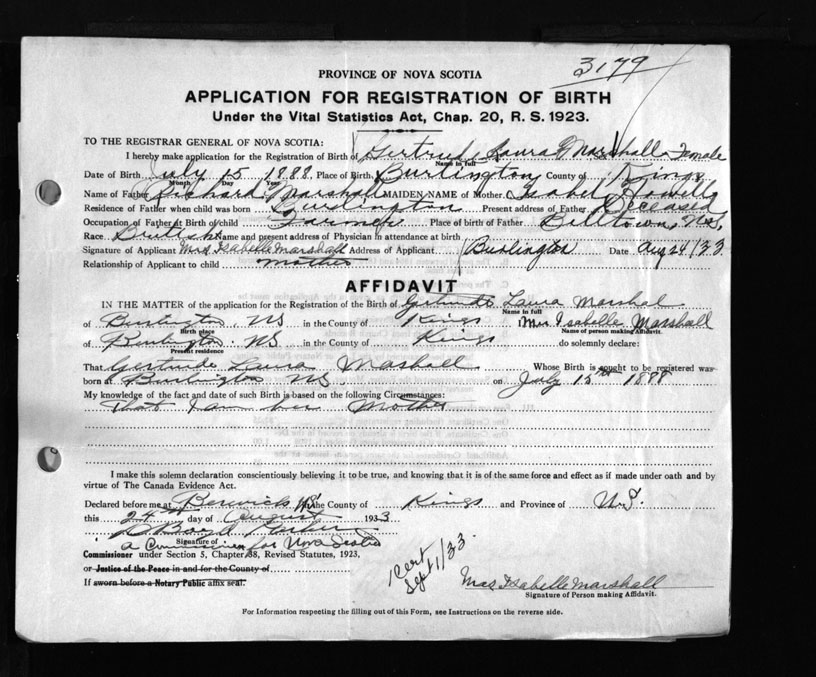 3179
PROVINCE OF NOVA SCOTIA
APPLICATION FOR REGISTRATION OF BIRTH
Under the Vital Statistics Act, Chap. 20, R. S. 1923.
TO THE REGISTRAR GENERAL OF NOVA SCOTIA:
I hereby make application for the Registration of Birth of Gertrude Laura Marshall Sex Female
Name in full
Date of Birth July 15 1888 Place of Birth Burlington County of Kings
Month Day Year
Name of Father Richard Marshall MAIDEN NAME of Mother Isabel Howell
Residence of Father when child was born Burlington Present address of Father Deceased
Occupation of Father at Birth of child Farmer Place of birth of Father Billtown, N.S.
Race British Name and present address of Physician in attendance at birth
Signature of Applicant Mrs Isabelle Marshall Address of Applicant Burlington Date Aug 24/33
Relationship of Applicant to child mother
AFFIDAVIT
IN THE MATTER of the application for the Registration of the Birth of Gertrude Laura Marshal
Name in full
of Burlington, NS in the County of Kings Mrs Isabelle Marshall
Birth place Name of person making Affidavit.
of Burlington, NS. in the County of Kings do solemnly declare:
Present residence
That Gertrude Laura Mashall Whose Birth is sought to be registered was
born at Burlington NS. on July 15th 1888
My knowledge of the fact and date of such Birth is based on the following Circumstances:
That I am her Mother
I make this solemn declaration conscientiously believing it to be true, and knowing that it is of the same force and effect as if made under oath and by
virtue of The Canada Evidence Act.
Declared before me at Berwick NS in the County of Kings and Province of N.S.
this 24th day of August 1933
Signature of
a Commissioner for Nova Scotia
Commissioner under Section 5, Chapter 38, Revised Statutes, 1923,
or Justice of the Peace in and for the County of
If sworn before a Notary Public affix seal.
Cert
Sept 1/33
Mrs Isabelle Marshall
Signature of Person making Affidavit.
For Information respecting the filling out of this Form, see Instructions on the reverse side.